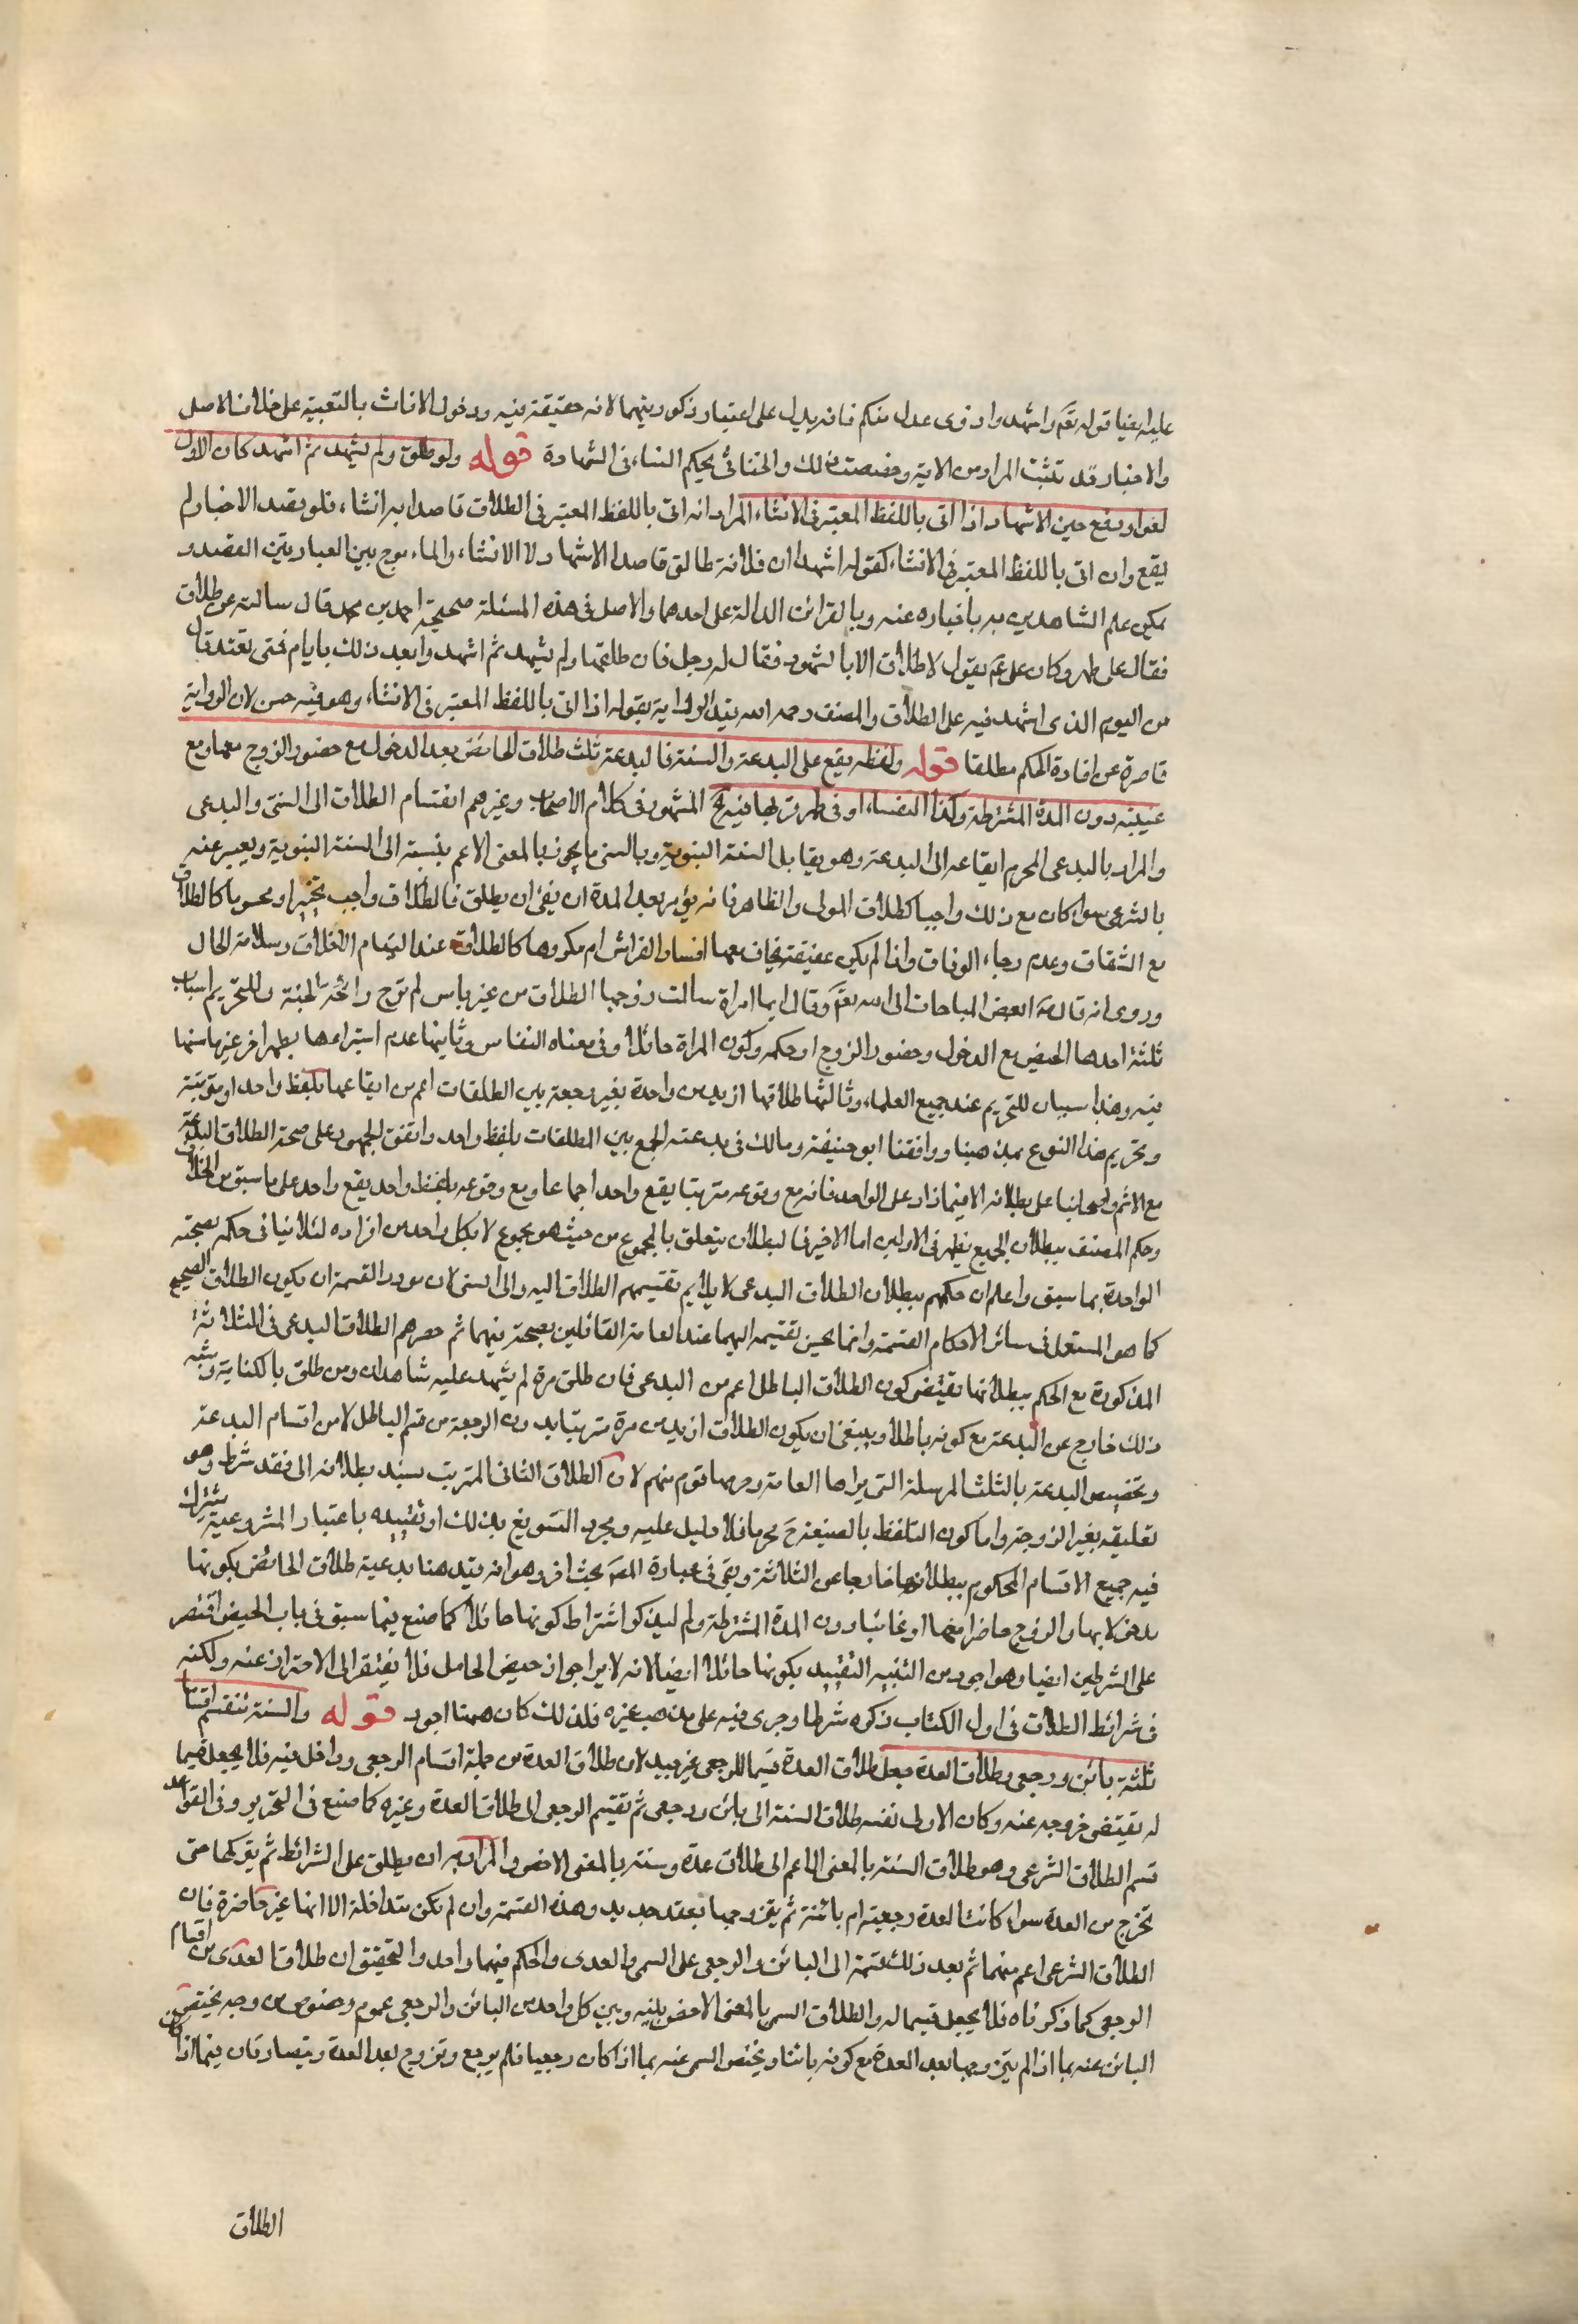 عليه ايضا قوله تعم واشهدوا ذوى عدل منكم فانه يدل على اعتبار ذكوريتهما لانه حقيقة فيه ودخول الاناث بالتبعية على خلاف الاصل
والاخبار قد تثبت المراد من الاية وخصصت ذلك والخناثى بحكم النساء فى الشهادة قوله ولو طلق ولم يشهد ثم اشهد كان الاول
لغوا ويقع حين الاشهاد اذا اتى باللفظ المعتبر فى الانشاء المراد انه اتى باللفظ المعتبر فى الطلاق قاصدا به الانشاء فلو قصد الاخبار لم
يقع وان اتى باللفظ المعتبر فى الانشاء كقوله اشهدا ان فلانة طالق قاصدا الاشهاد لا الانشاء والمايز بين العبارتين القصد و
يمكن علم الشاهدين به باخباره عنه وبالقرائن الدالة على احدهما والاصل فى هذه المسئلة صحيحة احمد بن محمد قال سالته عن طلاق
فقال على طهر وكان على عم يقول لا طلاق الا بالشهود فقال له رجل فان طلقها ولم يشهد ثم اشهد وا بعد ذلك بايام فمتى تعتد قال
من اليوم الذى اشهد فيه على الطلاق والمصنف رحمه الله قيد الرواية بقوله اذا اتى باللفظ المعتبر فى الانشاء وهو فيه حسن لان الرواية
قاصرة عن افادة الحكم مطلقا قوله ولفظه يقع على البدعة والسنة فالبدعة ثلث طلاق الحائض بعد الدخول مع حضور الزوج معها ومع
غيبته دون المدة المشترطة وكذا النفساء او فى طهر قربها فيه الخ المشهور فى كلام الاصحاب وغيرهم انقسام الطلاق الى السنى والبدعى
والمراد بالبدعى المحرم ايقاعه الى البدعة وهو يقابل السنة النبوية وبالسنى ما يجوز بالمعنى الاعم بنسبته الى السنة النبوية ويعبر عنه
بالشرعى سواء كان مع ذلك واجبا كطلاق المولى والمظاهر فانه يؤمر بعد المدة ان يفئ او يطلق فالطلاق واجب تخييرا ومحبوبا كالطلاق
مع الشقاق وعدم رجاء الوفاق واذا لم تكن عفيفة يخاف معها افساد الفراش ام مكروها كالطلاق عند التيام الاخلاق وسلامة الحال
وروى انه قال ابغض المباحات الى الله تعم وقال ايما امراة سالت زوجها الطلاق من غير باس لم ترح رائحة الجنة وللتحريم اسباب
ثلثة احدها الحيض مع الدخول وحضور الزوج او حكمه وكون المراة حائلا وفى معناه النفاس وثانيها عدم استبراءها بطهر اخر غير ماسها
فيه وهذا سببان للتحريم عند جميع العلماء وثالثها طلاقها ازيد من واحدة بغير رجعة بين الطلقات اعم من ايقاعها بلفظ واحد او مترتبة
وتحريم هذا النوع بمذهبنا ووافقنا ابو حنيفة ومالك فى بدعته الجمع بين الطلقات بلفظ واحد واتفق الجمهور على صحة الطلاق البدعى
مع الاثم واصحابنا على بطلانه الا فيما زاد على الواحد فانه مع وقوعه مترتبا يقع واحدا جماعا ومع وقوعه بلفظ واحد يقع واحد على ما سبق من الخلاف
وحكم المصنف ببطلان الجميع يظهر فى الاولين اما الاخير فالبطلان يتعلق بالمجموع من حيث هو مجموع لا بكل واحد من افراده لئلا ينافى حكمه بصحته
الواحدة بما سبق واعلم ان حكمهم ببطلان الطلاق البدعى لا يلايم تقسيمهم الطلاق اليه والى السنى لان مورد القسمة ان يكون الطلاق الصحيح
كما هو المستعمل فى سائر الاحكام القسمة وانما يحسن تقسيمه اليهما عند العامة القائلين بصحته فيهما ثم حصرهم الطلاق البدعى فى الثلاثة
المذكورة مع الحكم ببطلانها يقتضى كون الطلاق الباطل اعم من البدعى فان طلق مرة لم يشهد عليه شاهدان ومن طلق بالكناية وشبه
ذلك خارج عن البدعة مع كونه باطلا وينبغى ان يكون الطلاق ازيد من مرة مترتبا بدون الرجعة من قسم الباطل لا من اقسام البدعة
وتخصيص البدعة بالثلث المرسلة التى يراها العامة وحرمها قوم منهم لان الطلاق الثانى المترتب يستند بطلانه الى فقد شرط وهو
تعليقه بغير الزوجة واما كون التلفظ بالصيغة ح محرما فلا دليل عليه ومجرد التسويغ بذلك او تقييده باعتبار المشروعية يشترك
فيه جميع الاقسام المحكوم ببطلانها خارجا عن الثلاثة وبقى فى عبارة المصـ بحث اخر وهو انه قيد هنا بدعية طلاق الحائض بكونها
مدخولا بها والزوج حاضرا معها او غائبا دون المدة المشترطة ولم يذكر اشتراط كونها حائلا كما صنع فيما سبق فى باب الحيض اقتصر
على الشرطين ايضا وهو اجود من التنبيه التقييد بكونها حائلا ايضا لانه لا يرا جواز حيض الحامل فلا يفتقر الى الاحتراز عنه ولكنه
فى شرائط الطلاق فى اول الكتاب ذكره شرطا وجرى فيه على مذهب غيره فلذلك كان هيهنا اجود قوله والسنة تنقسم اقساما
ثلثة بائن ورجعى وطلاق العدة جعل طلاق العدة قسيما للرجعى غير جيد لان طلاق العدة من جملة اقسام الرجعى وداخل فيه فلا يجعل قسيما
له يقتضى خروجه عنه وكان الاولى تقسيم طلاق السنة الى بائن ورجعى ثم تقسيم الرجعى الى طلاق العدة وغيره كما صنع فى التحرير وفى القواعد
قسم الطلاق الشرعى وهو طلاق السنة بالمعنى الاعم الى طلاق عدة وسنة بالمعنى الاخص والمراد به ان يطلق على الشرائط ثم يتركها حتى
تخرج من العدة سواء كانت العدة رجعية ام بائنة ثم يتزوجها بعقد جديد وهذه القسمة وان لم تكن متداخلة الا انها غير حاضرة فان
الطلاق الشرعى اعم منهما ثم بعد ذلك قسمة الى البائن والرجعى على السنى والعدى والحكم فيهما واحد والتحقيق ان طلاق العدى من اقسام
الرجعى كما ذكرناه فلا يجعل قسيما له والطلاق السنى بالمعنى الاخص بينه وبين كل واحد من البائن والرجعى عموم وخصوص من وجه يختص
البائن عنه بما اذا لم يتزوجها بعد العدة مع كونه بائنا ويختص السنى عنه بما اذا كان رجعيا فلم يرجع وتزوج بعد العدة ويتصادقان فيما اذا كان
الطلاق